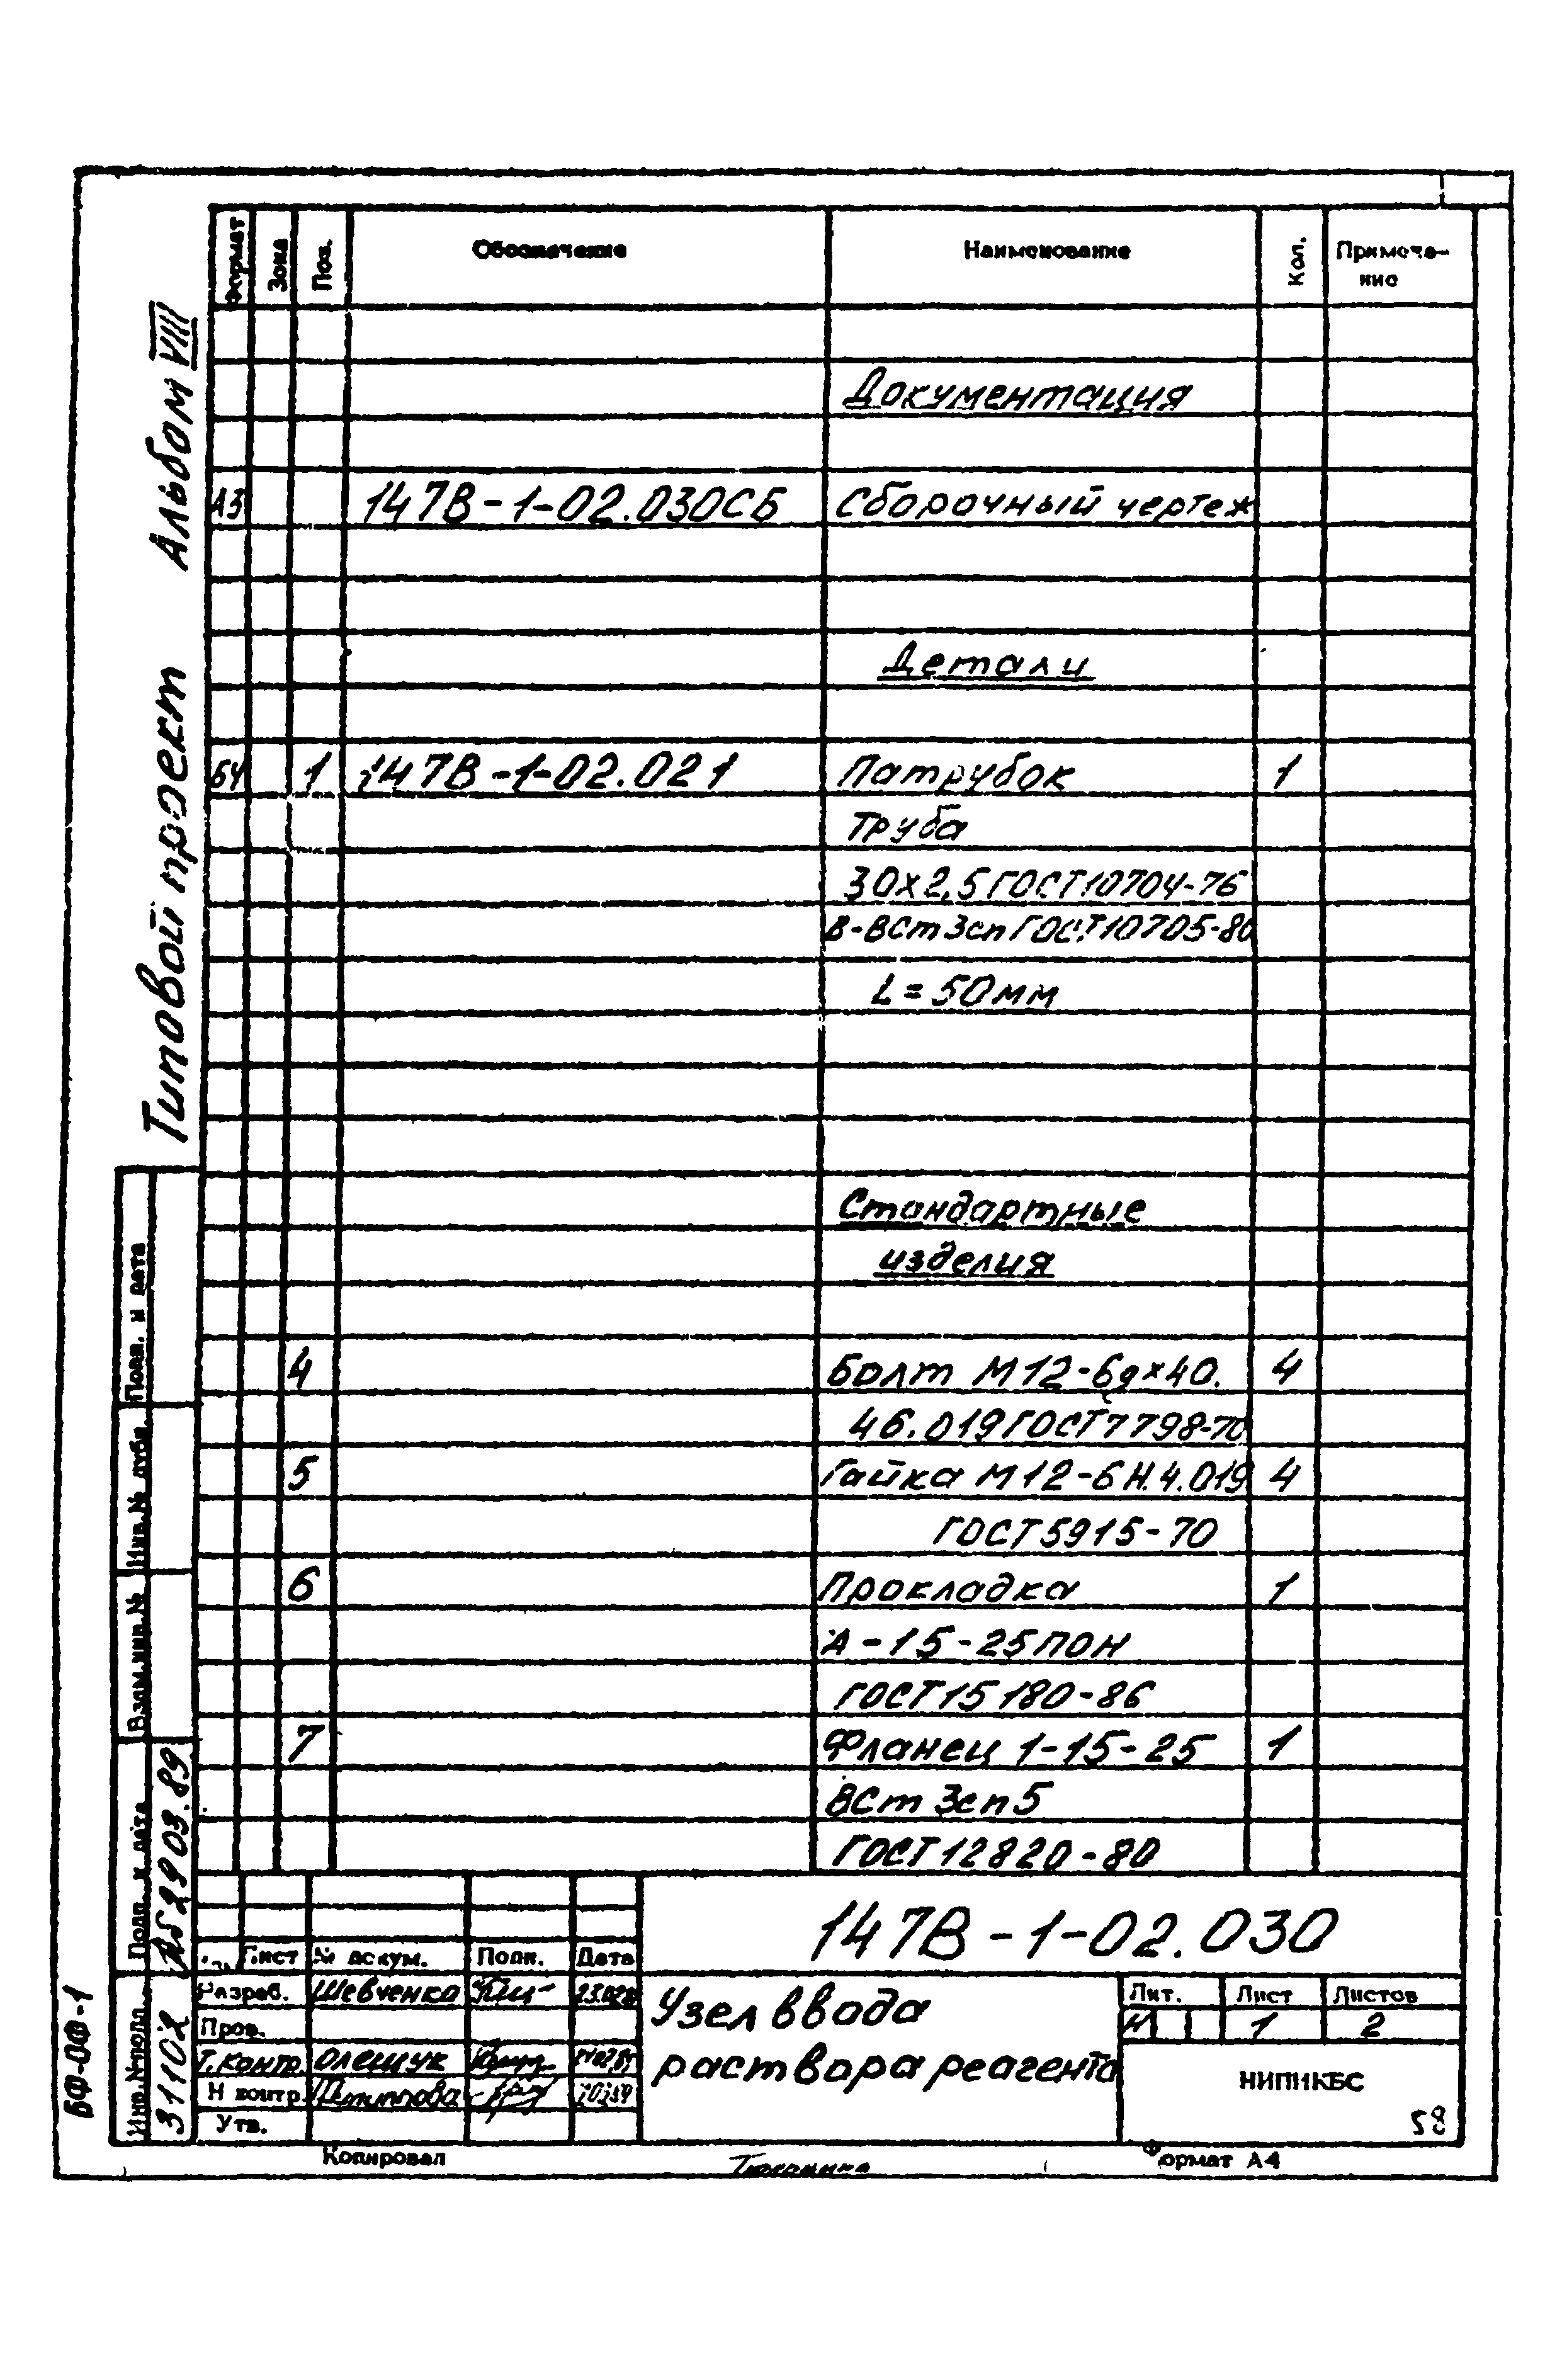 Типовой проект Альбом VIII
Формат Зона Поз. Обозначение Наименование Кол. Примеча-
ние
Документация
А3 147В-1-02.030СБ Сборочный чертеж
Детали
БЧ 1 147В-1-02.021 Патрубок 1
Труба
30х2,5 ГОСТ 10704-76
В-ВСт3сп ГОСТ 10705-80
L=50мм
Стандартные
изделия
4 Болт М12-6gх40. 4
46.019 ГОСТ 7798-70
5 Гайка М12-6Н.4.019 4
ГОСТ 5915-70
6 Прокладка 1
А-15-25 ПОН
ГОСТ 15180-86
7 Фланец 1-15-25 1
ВСт3сп5
ГОСТ 12820-80
Подп. и дата
Инв.№ дубл.
Взам.инв.№
Подп. и дата
29.03.89
Инв.№ подл.
31102
БФ-ОФ-1
147В-1-02.030
Лист № докум. Подп. Дата
Разраб. Шевченко
Пров.
Т.контр. Олещук
Н контр.
Утв.
Узел ввода
раствора реагента
Лит. Лист Листов
И 1 2
НИПИКБС
58
Копировал Формат А4